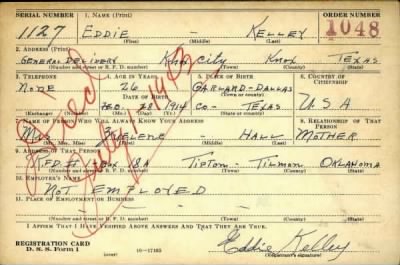 SERIAL NUMBER 1. NAME (Print) ORDER NUMBER
1127 EDDIE - KELLEY 1048
(First) (Middle) (Last)
2. ADDRESS (Print)
GENERAL DELIVERY KNOX CITY KNOX TEXAS
(Number and street or R. F. D. number) (Town) (County) (State)
3. TELEPHONE 4. AGE IN YEARS 5. PLACE OF BIRTH 6. COUNTRY OF CITIZENSHIP
NONE 26 GARLAND-DALLAS
DATE OF BIRTH (Town or county)
FEB. 28 1914 CO- TEXAS U S A
(Exchange) (Number) (Mo.) (Day) (Yr.) (State or country)
7. NAME OF PERSON WHO WILL ALWAYS KNOW YOUR ADDRESS 8. RELATIONSHIP OF THAT PERSON
MRS - HALL MOTHER
(Mr., Mrs., Miss) (First) (Middle) (Last)
9. ADDRESS OF THAT PERSON
R.F.D. #1 BOX 18A TIPTON - TILMAN OKLAHOMA
(Number and street or R. F. D. number) (Town) (County) (State)
10. EMPLOYER'S NAME
NOT EMPLOYED
11. PLACE OF EMPLOYMENT OR BUSINESS
(Number and street or R. F. D. number) (Town) (County) (State)
I AFFIRM THAT I HAVE VERIFIED ABOVE ANSWERS AND THAT THEY ARE TRUE.
REGISTRATION CARD
D. S. S. Form 1 (over) 16-17105 Eddie Kelley
(Registrant's signature)